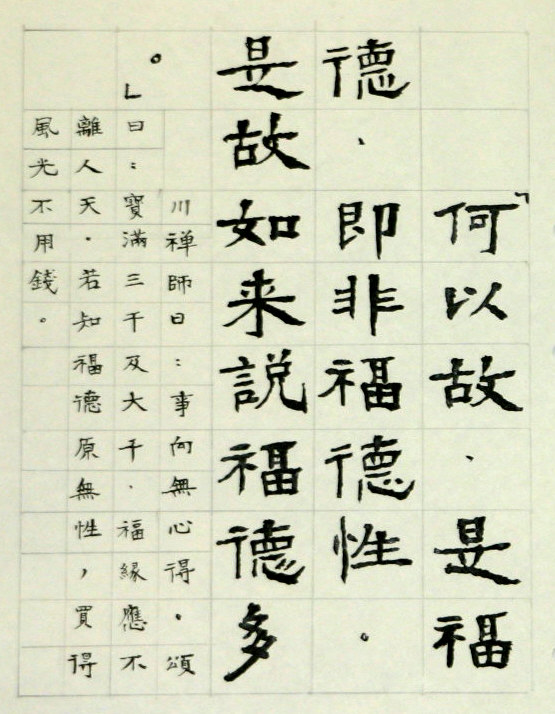 「何以故、是福
德、即非福德性。
是故如来説福德多
。」
川禅師曰：事向無心得．頌
曰：寶滿三千及大千．福緣應不
離人天．若知福德原無性，買得
風光不用錢。